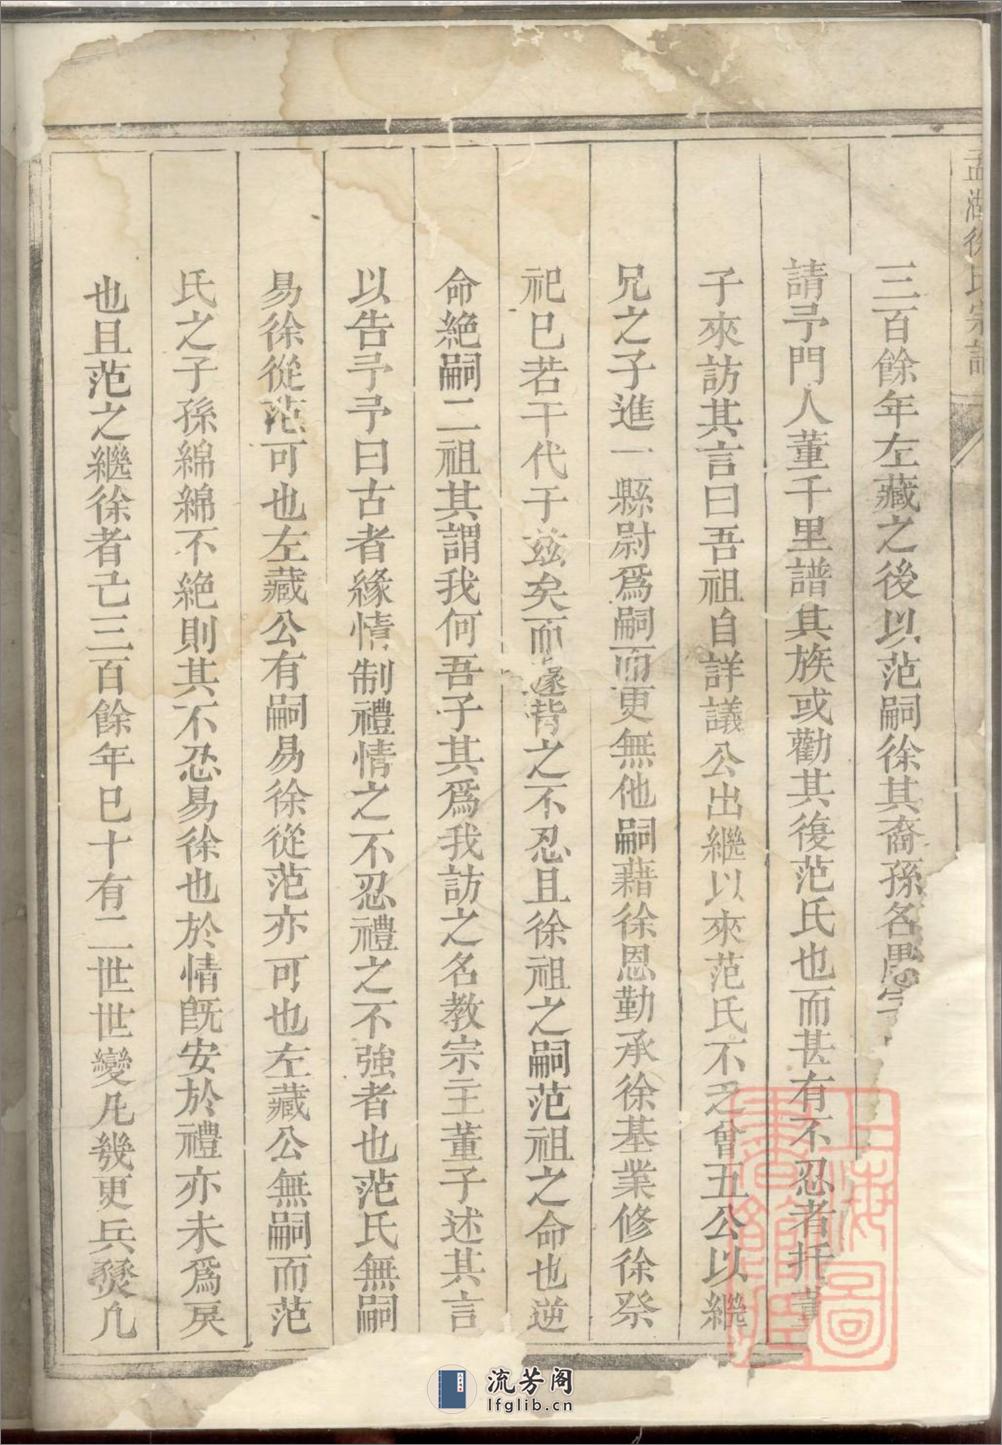 孟湖徐氏宗譜
三百餘年左藏之後以范嗣徐其裔孫名愚字
請予門人董千里譜其族或勸其復范氏也而甚有不忍者托董
子來訪其言曰吾祖自詳議公出繼以來范氏不之會五公以繼
兄之子進一縣尉爲嗣而更無他嗣藉徐恩勤承徐基業修徐祭
祀已若干代于玆矣而遂背之不忍且徐祖之嗣范祖之命也逆
命絶嗣二祖其謂我何吾子其爲我訪之名教宗主董子述其言
以告予予曰古者緣情制禮情之不忍禮之不強者也范氏無嗣
易徐從范可也左藏公有嗣易徐從范亦可也左藏公無嗣而范
氏之子孫綿綿不絶則其不忍易徐也於情旣安於禮亦未爲戾
也且范之繼徐者已三百餘年巳十有二世世變凡幾更兵燹凡
上海圖書館藏
流芳阁
lfglib.cn